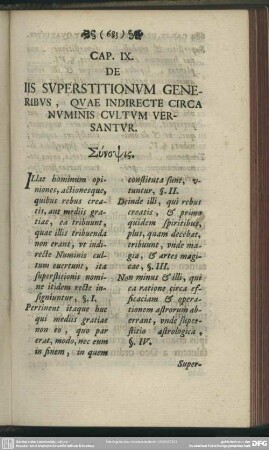 (683)
CAP. IX.
DE
IIS SVPERSTITIONVM GENE-
RIBVS, QVAE INDIRECTE CIRCA
NVMINIS CVLTVM VER-
SANTVR.
Σύνοψις.
Illae hominum opi-
niones, actionesque,
quibus rebus crea-
tis, aut mediis gra-
tiae, ea tribuunt,
quae illis tribuenda
non erant, vt indi-
recte Numinis cul-
tum euertunt, ita
superstitionis nomi-
ne itidem recte in-
signiuntur, §. I.
Pertinent itaque huc
qui mediis gratiae
non eo, quo par
erat, modo, nec eum
in finem, in quem
constituta sunt, v-
tuntur, §. II.
Deinde illi, qui rebus
creatis, & primo
quidem spiritibus,
plus, quam decebat,
tribuunt, vnde ma-
gia, & artes magi-
cae, §. III.
Non minus & illi, qui
ca ratione circa ef-
ficaciam & opera-
tionem astrorum ab-
errant, vnde super-
stitio astrologica,
§. IV.
Super-